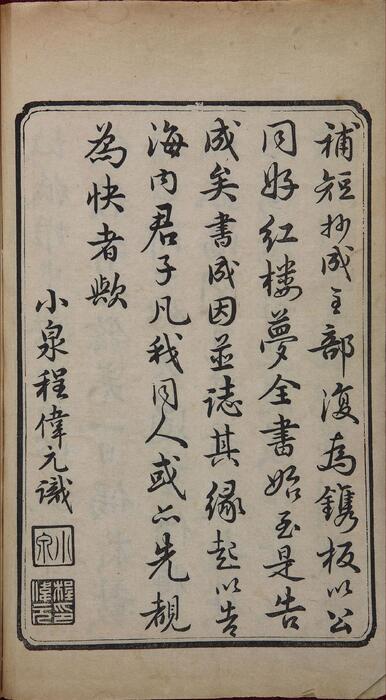 補短抄成全部復為鐫板以公
同好紅樓夢全書始至是告
成矣書成因並誌其緣起以告
海內君子凡我同人或亦先覩
為快者歟
小泉程偉元識
小泉